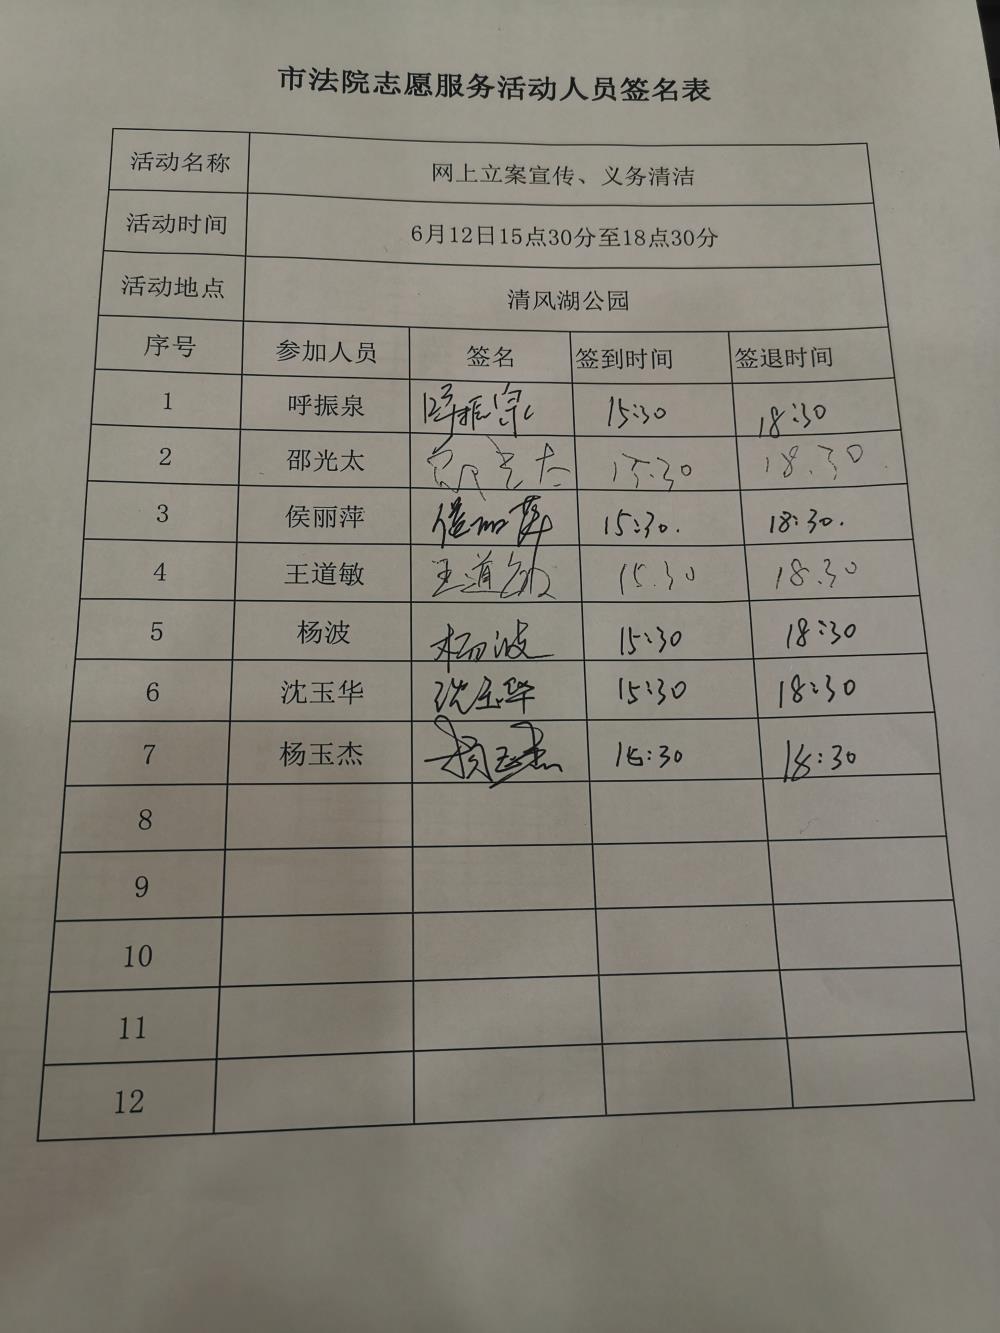 市法院志愿服务活动人员签名表
活动名称 网上立案宣传、义务清洁
活动时间 6月12日15点30分至18点30分
活动地点 清风湖公园
序号 参加人员 签名 签到时间 签退时间
1 呼振泉 呼振泉 15:30 18:30
2 邵光太 邵光太 15:30 18:30
3 侯丽萍 侯丽萍 15:30. 18:30.
4 王道敏 王道敏 15:30 18:30
5 杨波 杨波 15:30 18:30
6 沈玉华 沈玉华 15:30 18:30
7 杨玉杰 杨玉杰 15:30 18:30
8
9
10
11
12